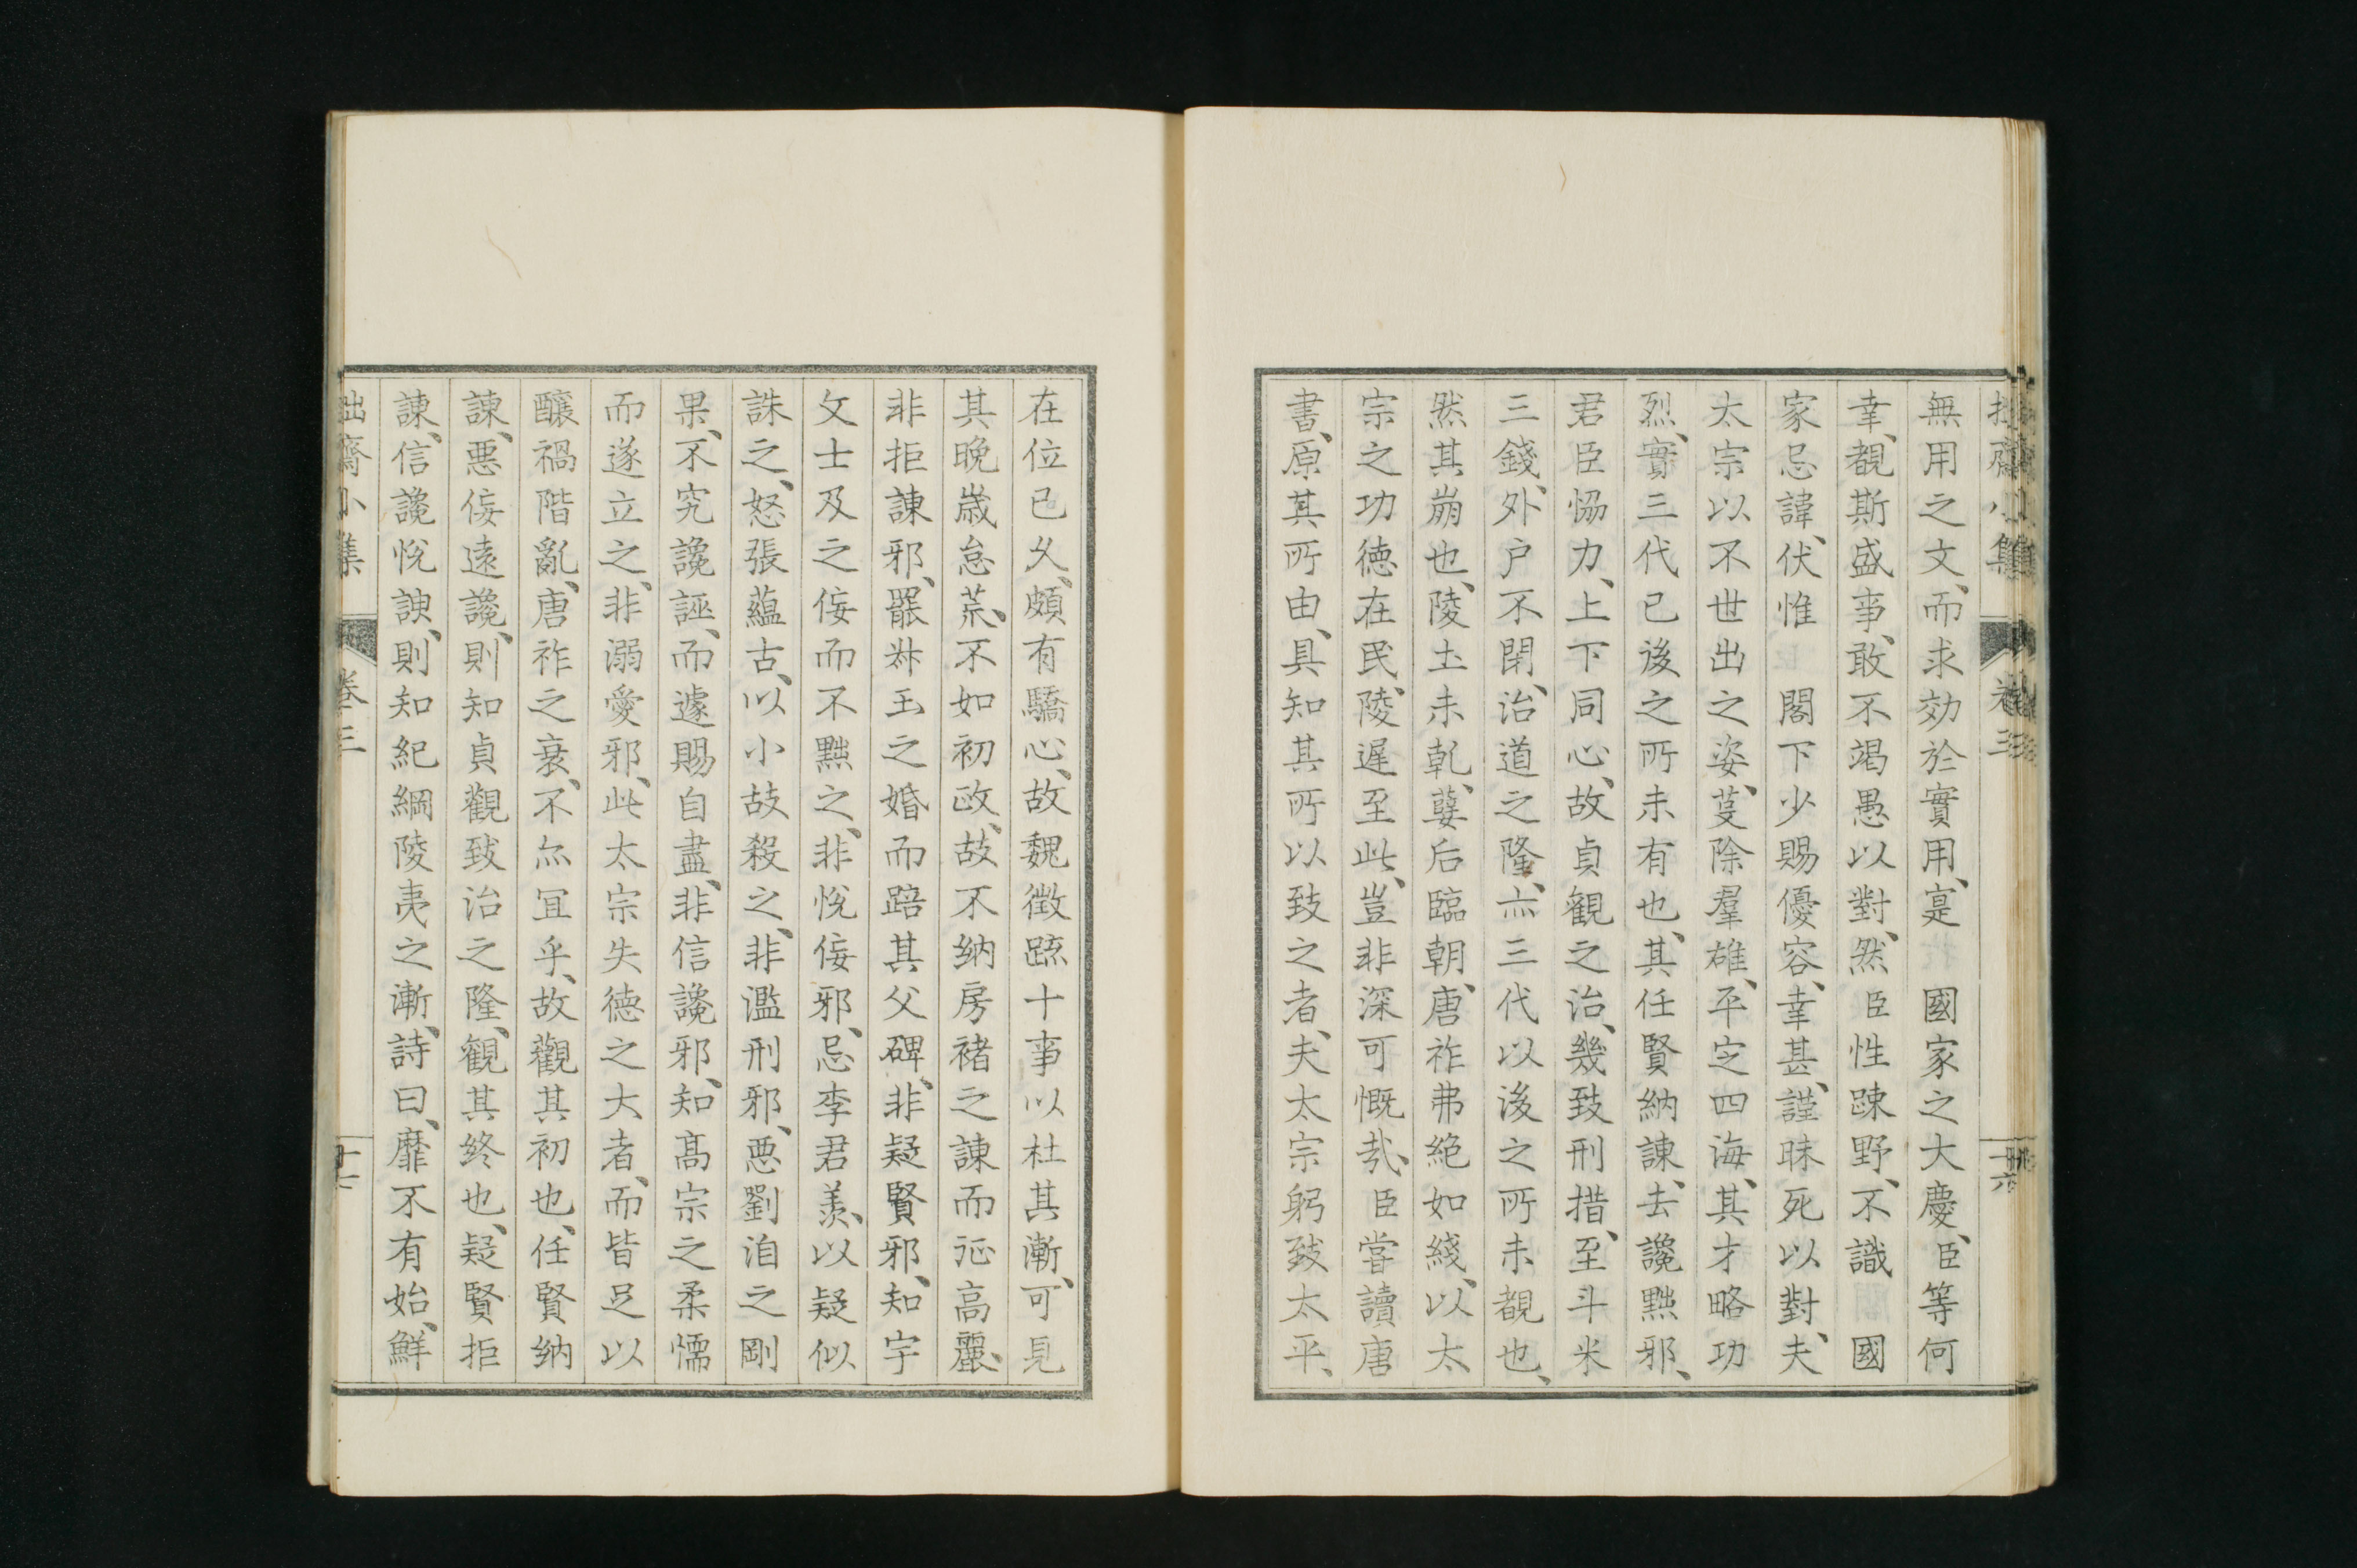 拙齋小集 卷三 十六
無用之文、而求効於實用、寔 國家之大慶、臣等何
幸、覩斯盛事、敢不竭愚以對、然、臣性踈野、不識 國
家忌諱、伏惟 閣下少賜優容、幸甚、謹昧死以對、夫、
太宗以不世出之姿、芟除羣雄、平定四海、其才略功
烈、實三代已後之所未有也、其任賢納諫、去讒黜邪、
君臣恊力、上下同心、故貞觀之治、幾致刑措、至斗米
三錢、外户不閉、治道之隆、亦三代以後之所未覩也、
然其崩也、陵土未乾、嬖后臨朝、唐祚弗絶如綫、以太
宗之功德在民、陵遲至此、豈非深可慨哉、臣嘗讀唐
書、原其所由、具知其所以致之者、夫太宗躬致太平、
在位已久、頗有驕心、故魏徵䟽十事以杜其漸、可見
其晩歳怠荒、不如初政、故不納房褚之諫而征高麗、
非拒諫邪、罷叔玉之婚而踣其父碑、非疑賢邪、知宇
文士及之佞而不黜之、非悅佞邪、忌李君羨、以疑似
誅之、怒張蘊古、以小故殺之、非濫刑邪、惡劉洎之剛
果、不究讒誣、而遽賜自盡、非信讒邪、知高宗之柔懦
而遂立之、非溺愛邪、此太宗失德之大者、而皆足以
釀禍階亂、唐祚之衰、不亦冝乎、故觀其初也、任賢納
諫、惡佞遠讒、則知貞觀致治之隆、觀其終也、疑賢拒
諫、信讒悅諛、則知紀綱陵夷之漸、詩曰、靡不有始、鮮
拙齋小集 卷三